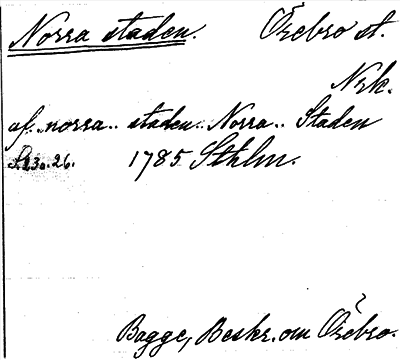 Norra staden. Örebro st.
Nrk.
af.. norra.. staden.. Norra.. Staden
S. 23o. 26. 1785 Sthlm.
Bagge, Beskr. om Örebro.